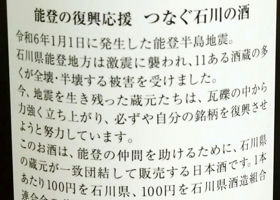 能登の復興応援　つなぐ石川の酒
令和6年1月1日に発生した能登半島地震。
石川県能登地方は激震に襲われ、11ある酒蔵の多
くが全壊・半壊する被害を受けました。
今、地震を生き残った蔵元たちは、瓦礫の中から
力強く立ち上がり、必ずや自分の銘柄を復興させ
ようと努力しています。
このお酒は、能登の仲間を助けるために、石川県
の蔵元が一致団結して販売する日本酒です。1本
あたり100円を石川県、100円を石川県酒造組合